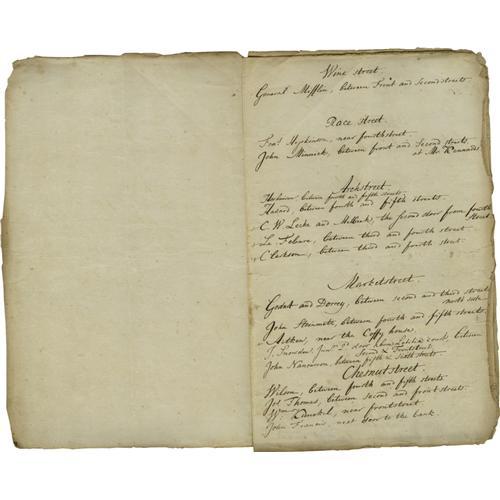 Wine street.
General Mifflin, between Front and Second streets
Race street.
Hopkinson, near fourth street.
John Minnick, between front and second streets
at Mr. Kennedi
Archstreet.
between fourth and fifth streets.
Hazard, between fourth and fifth streets
C. W. Lecke and the second door from fourth
street
La Febure, between third and fourth street
Clarkson, between third and fourth street.
Marketstreet.
Godart and Dorrey, between second and third streets
north side
John Steinmetz, between fourth and fifth streets.
Aitken, near the Coffy house.
J. Snowden, Junr. 2d door court, between
Second & Frontstreet
John Nancarrow, between fifth & sixth streets
Chesnutstreet.
Wilson, between fourth and fifth streets.
Jos Thomas, between second and front streets.
Wm. near frontstreet.
John Francis, next door to the bank.